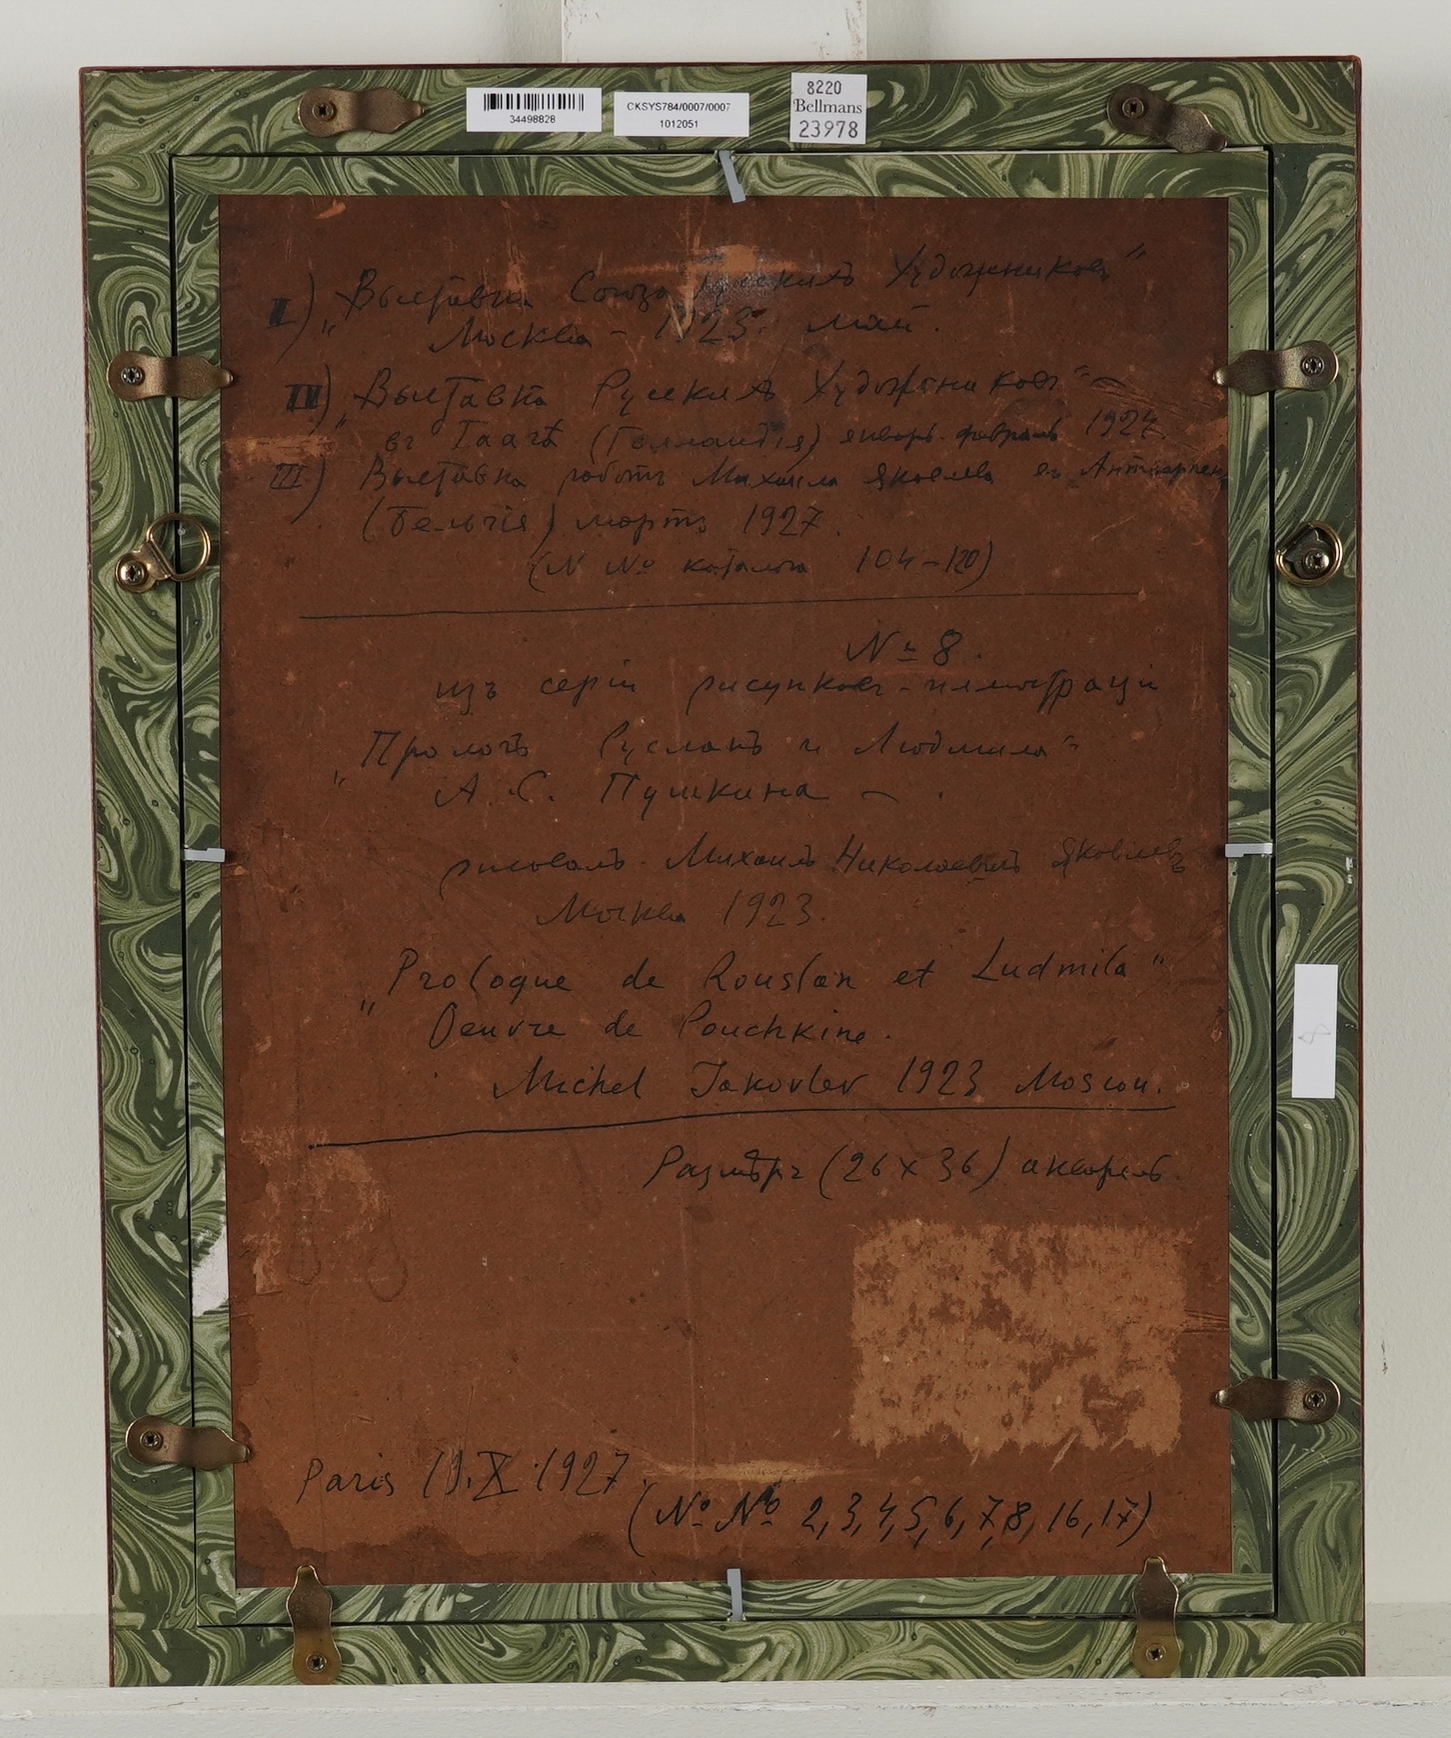 34498828
CKSYS784/0007/0007
1012051
8220
Bellmans
23978
I) „Выставка Союза Русскихъ Художниковъ“
Москва – 1923. май.
II) „Выставка Русскихъ Художниковъ“
въ Гаагѣ (Голландiя) январь-февраль 1924
III) Выставка работъ Михаила Яковлева въ Антверпенѣ
(Бельгiя) мартъ 1927.
(N No каталога 104–120)
№ 8.
изъ серiи рисунковъ-иллюстрацiи
„Прологъ Русланъ и Людмила“
А. С. Пушкина – .
рисовалъ Михаилъ Николаевичъ Яковлевъ
Москва 1923.
„Prologue de Rouslan et Ludmila“
Oeuvre de Pouchkine.
Michel Jakovlev 1923 Moscou.
Размѣръ (26 x 36) акварель
8
Paris 19.X.1927.
(No No 2,3,4,5,6,7,8,16,17)